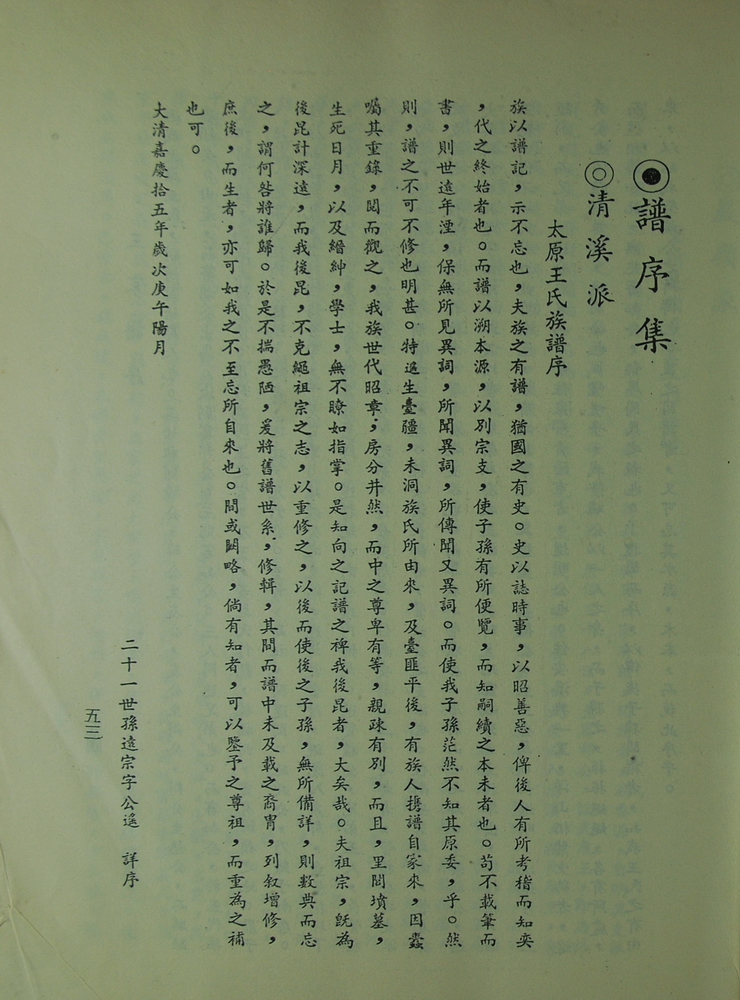 ◉譜序集
◎清溪派
太原王氏族譜序
族以譜記，示不忘也，夫族之有譜，猶國之有史。史以誌時事，以昭善惡，俾後人有所考稽而知奕
，代之終始者也。而譜以溯本源，以別宗支，使子孫有所便覽，而知嗣續之本末者也。苟不載筆而
書，則世遠年湮，保無所見異詞，所聞異詞，所傳聞又異詞。而使我子孫茫然不知其原委，乎。然
則，譜之不可不修也明甚。特遥生臺疆，未洞族氏所由來，及臺匪平後，有族人携譜自家來，因
囑其重錄，閱而觀之，我族世代昭章；房分井然，而中之尊卑有等，親疎有別，而且，里閭墳墓，
生死日月，以及縉紳，學士，無不瞭如指掌。是知向之記譜之裨我後昆者，大矣哉。夫祖宗，既為
後昆計深遠，而我後昆，不克繩祖宗之志，以重修之，以後而使後之子孫，無所備詳，則數典而忘
之，謂何咎將誰歸。於是不揣愚陋，爰將舊譜世系，修輯，其間而譜中未及載之裔胄，列叙增修，
庶後，而生者，亦可如我之不至忘所自來也。間或闕略，倘有知者，可以鑒予之尊祖，而重為之補
也可。
大清嘉慶拾五年歲次庚午陽月
二十一世孫遠宗字公遙　詳序
五三